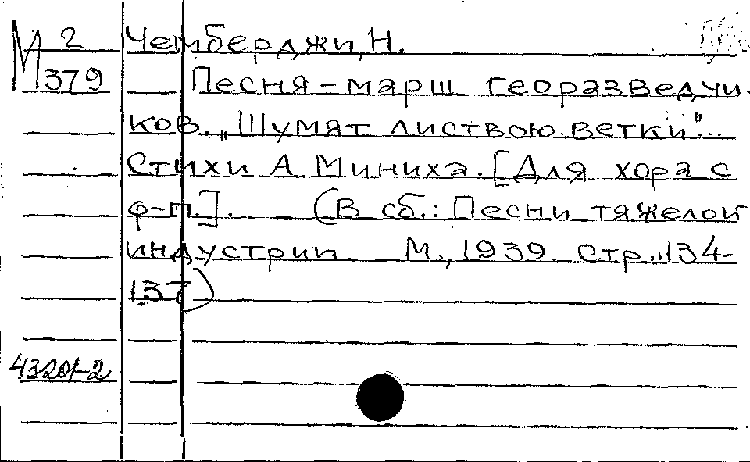 М 2
379
Чемберджи, Н.
Песня-марш георазведчи-
ков. „Шумят листвою ветки"...
Стихи А Миниха. [Для хора с
ф-п.]. (В сб.: Песни тяжелой
индустрии М., 1939 стр. 134-
137)
43201-2